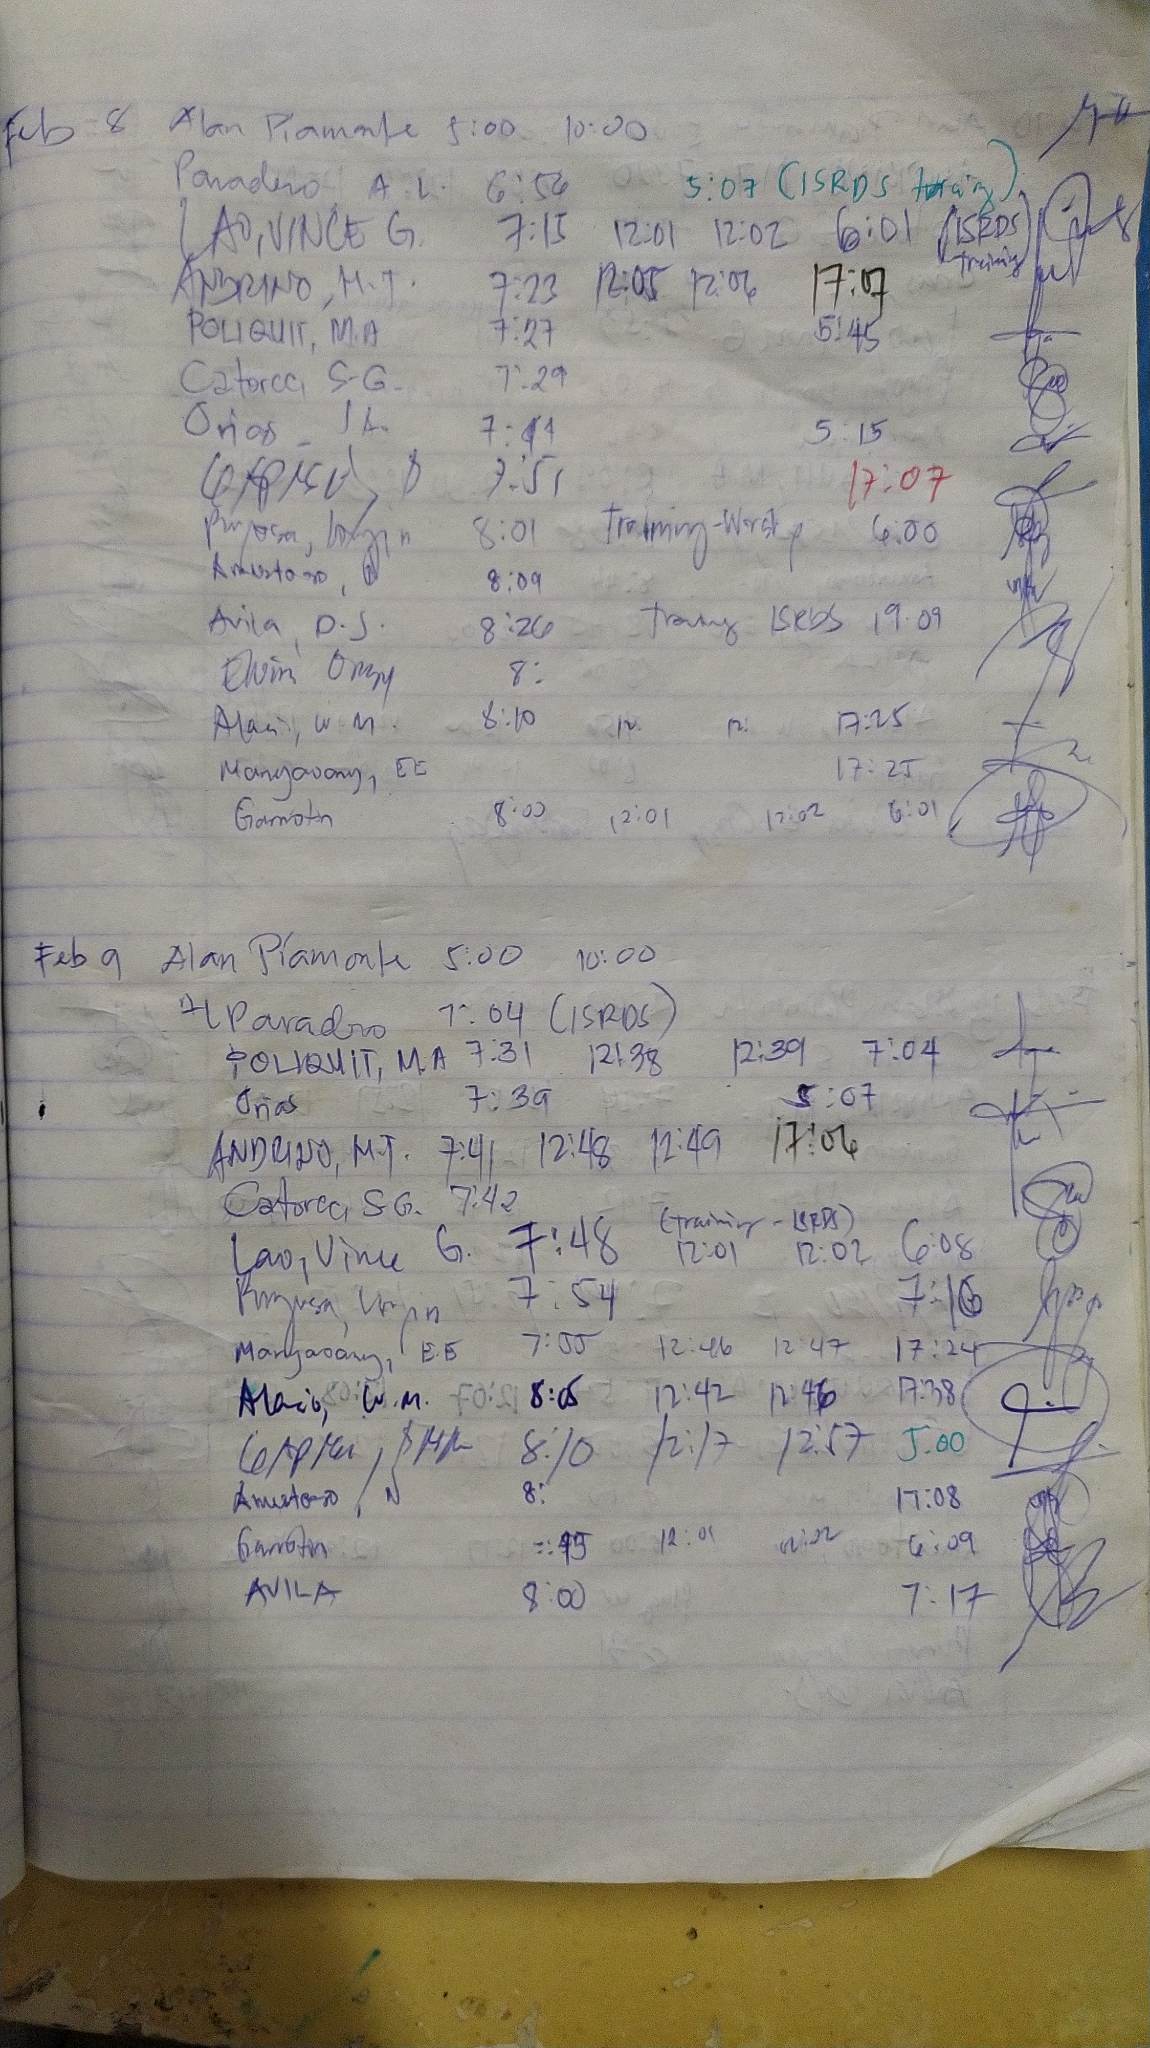 Feb 8 Alan Piamonte 5:00 10:00
Paradero, A L. 6:56 5:07 (ISRDS training)
LAO, VINCE G. 7:15 12:01 12:02 6:01 (ISRDS training)
ANDRINO, M.T. 7:23 12:05 12:06 17:07
POLIQUIT, M.A 7:27 5:45
Catorce, S.G. 7:29
Orias J.A. 7:44 5:15
7:51 17:07
8:01 Training-Worskp 6:00
8:09
Avila, D.S. 8:26 Training ISRDS 19.09
Elvin 8:
W.M. 8:10 12: 12: 17:25
Mangaoang, EE 17:25
Garrotin 8:00 12:01 12:02 6:01
Feb 9 Alan Piamonte 5:00 10:00
AL Paradero 7:04 (ISRDS)
POLIQUIT, M.A 7:31 12:38 12:39 7:04
Orias 7:39 5:07
ANDRINO, M.T. 7:41 12:48 12:49 17:06
Catorce, S.G. 7:42
(training - ISRDS)
Lao, Vince G. 7:48 12:01 12:02 6:08
7:54 7:16
Mangaoang, E.E 7:55 12:46 12:47 17:24
W.M. 8:05 12:42 12:46 17:38
8:10 12:17 12:57 5:00
N 8: 17:08
Garrotin 12:01 12:02 6:09
AVILA 8:00 7:17